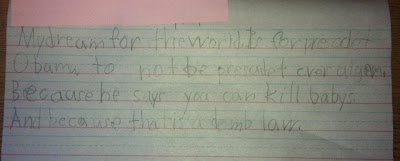 My dream for the world is for presdet
Obama to not be presdet ever aigen.
Because he says you can kill babys
And because that is a domb law.